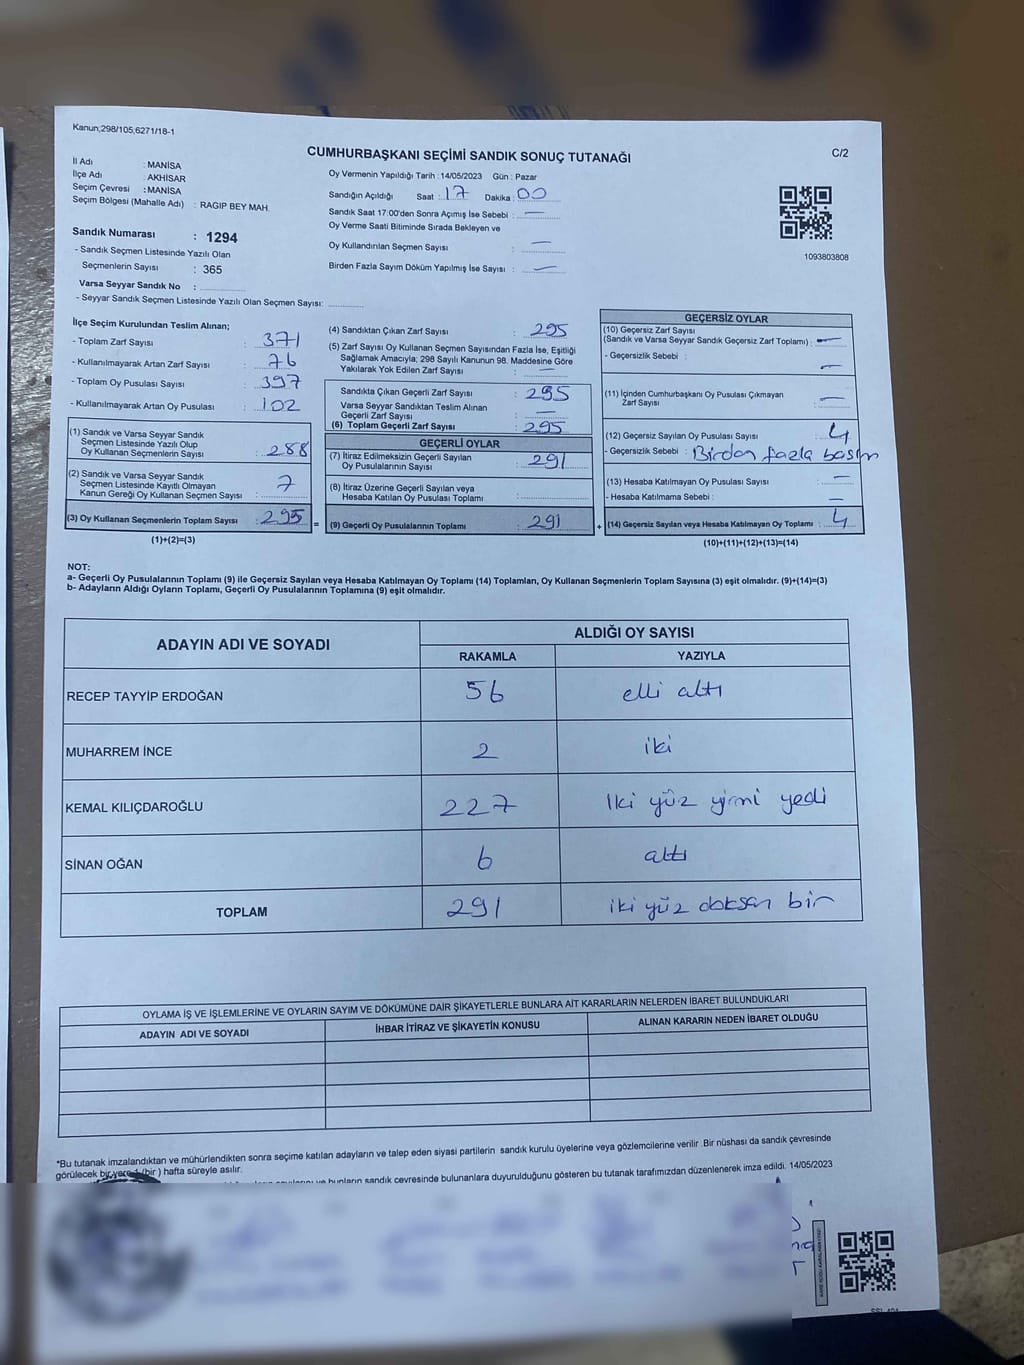 Kanun;298/105,6271/18-1
CUMHURBAŞKANI SEÇİMİ SANDIK SONUÇ TUTANAĞI
C/2
İl Adı : MANİSA
İlçe Adı : AKHİSAR
Seçim Çevresi : MANİSA
Seçim Bölgesi (Mahalle Adı) : RAGIP BEY MAH.
Sandık Numarası : 1294
- Sandık Seçmen Listesinde Yazılı Olan
Seçmenlerin Sayısı : 365
Varsa Seyyar Sandık No :
- Seyyar Sandık Seçmen Listesinde Yazılı Olan Seçmen Sayısı:
Oy Vermenin Yapıldığı Tarih : 14/05/2023 Gün : Pazar
Sandığın Açıldığı Saat : 17 Dakika : 00
Sandık Saat 17:00'den Sonra Açımış İse Sebebi : —
Oy Verme Saati Bitiminde Sırada Bekleyen ve
Oy Kullandırılan Seçmen Sayısı : —
Birden Fazla Sayım Döküm Yapılmış İse Sayısı : —
1093803808
İlçe Seçim Kurulundan Teslim Alınan;
- Toplam Zarf Sayısı : 371
- Kullanılmayarak Artan Zarf Sayısı : 76
- Toplam Oy Pusulası Sayısı : 397
- Kullanılmayarak Artan Oy Pusulası : 102
(1) Sandık ve Varsa Seyyar Sandık
Seçmen Listesinde Yazılı Olup
Oy Kullanan Seçmenlerin Sayısı : 288
(2) Sandık ve Varsa Seyyar Sandık
Seçmen Listesinde Kayıtlı Olmayan
Kanun Gereği Oy Kullanan Seçmen Sayısı : 7
(3) Oy Kullanan Seçmenlerin Toplam Sayısı : 295 =
(1)+(2)=(3)
(4) Sandıktan Çıkan Zarf Sayısı : 295
(5) Zarf Sayısı Oy Kullanan Seçmen Sayısından Fazla İse, Eşitliği
Sağlamak Amacıyla; 298 Sayılı Kanunun 98. Maddesine Göre
Yakılarak Yok Edilen Zarf Sayısı : —
Sandıkta Çıkan Geçerli Zarf Sayısı : 295
Varsa Seyyar Sandıktan Teslim Alınan
Geçerli Zarf Sayısı : —
(6) Toplam Geçerli Zarf Sayısı : 295
GEÇERLİ OYLAR
(7) İtiraz Edilmeksizin Geçerli Sayılan
Oy Pusulalarının Sayısı : 291
(8) İtiraz Üzerine Geçerli Sayılan veya
Hesaba Katılan Oy Pusulası Toplamı :
(9) Geçerli Oy Pusulalarının Toplamı : 291 +
GEÇERSİZ OYLAR
(10) Geçersiz Zarf Sayısı
(Sandık ve Varsa Seyyar Sandık Geçersiz Zarf Toplamı) : —
- Geçersizlik Sebebi : —
(11) İçinden Cumhurbaşkanı Oy Pusulası Çıkmayan
Zarf Sayısı : —
(12) Geçersiz Sayılan Oy Pusulası Sayısı : 4
- Geçersizlik Sebebi : Birden fazla basım
(13) Hesaba Katılmayan Oy Pusulası Sayısı : —
- Hesaba Katılmama Sebebi : —
(14) Geçersiz Sayılan veya Hesaba Katılmayan Oy Toplamı : 4
(10)+(11)+(12)+(13)=(14)
NOT:
a- Geçerli Oy Pusulalarının Toplamı (9) ile Geçersiz Sayılan veya Hesaba Katılmayan Oy Toplamı (14) Toplamları, Oy Kullanan Seçmenlerin Toplam Sayısına (3) eşit olmalıdır. (9)+(14)=(3)
b- Adayların Aldığı Oyların Toplamı, Geçerli Oy Pusulalarının Toplamına (9) eşit olmalıdır.
ADAYIN ADI VE SOYADI
ALDIĞI OY SAYISI
RAKAMLA YAZIYLA
RECEP TAYYİP ERDOĞAN 56 elli altı
MUHARREM İNCE 2 iki
KEMAL KILIÇDAROĞLU 227 İki yüz yirmi yedi
SİNAN OĞAN 6 altı
TOPLAM 291 iki yüz doksan bir
OYLAMA İŞ VE İŞLEMLERİNE VE OYLARIN SAYIM VE DÖKÜMÜNE DAİR ŞİKAYETLERLE BUNLARA AİT KARARLARIN NELERDEN İBARET BULUNDUKLARI
ADAYIN ADI VE SOYADI İHBAR İTİRAZ VE ŞİKAYETİN KONUSU ALINAN KARARIN NEDEN İBARET OLDUĞU
*Bu tutanak imzalandıktan ve mühürlendikten sonra seçime katılan adayların ve talep eden siyasi partilerin sandık kurulu üyelerine veya gözlemcilerine verilir. Bir nüshası da sandık çevresinde
görülecek bir yere 1 (bir) hafta süreyle asılır.
bunların sandık çevresinde bulunanlara duyurulduğunu gösteren bu tutanak tarafımızdan düzenlenerek imza edildi. 14/05/2023